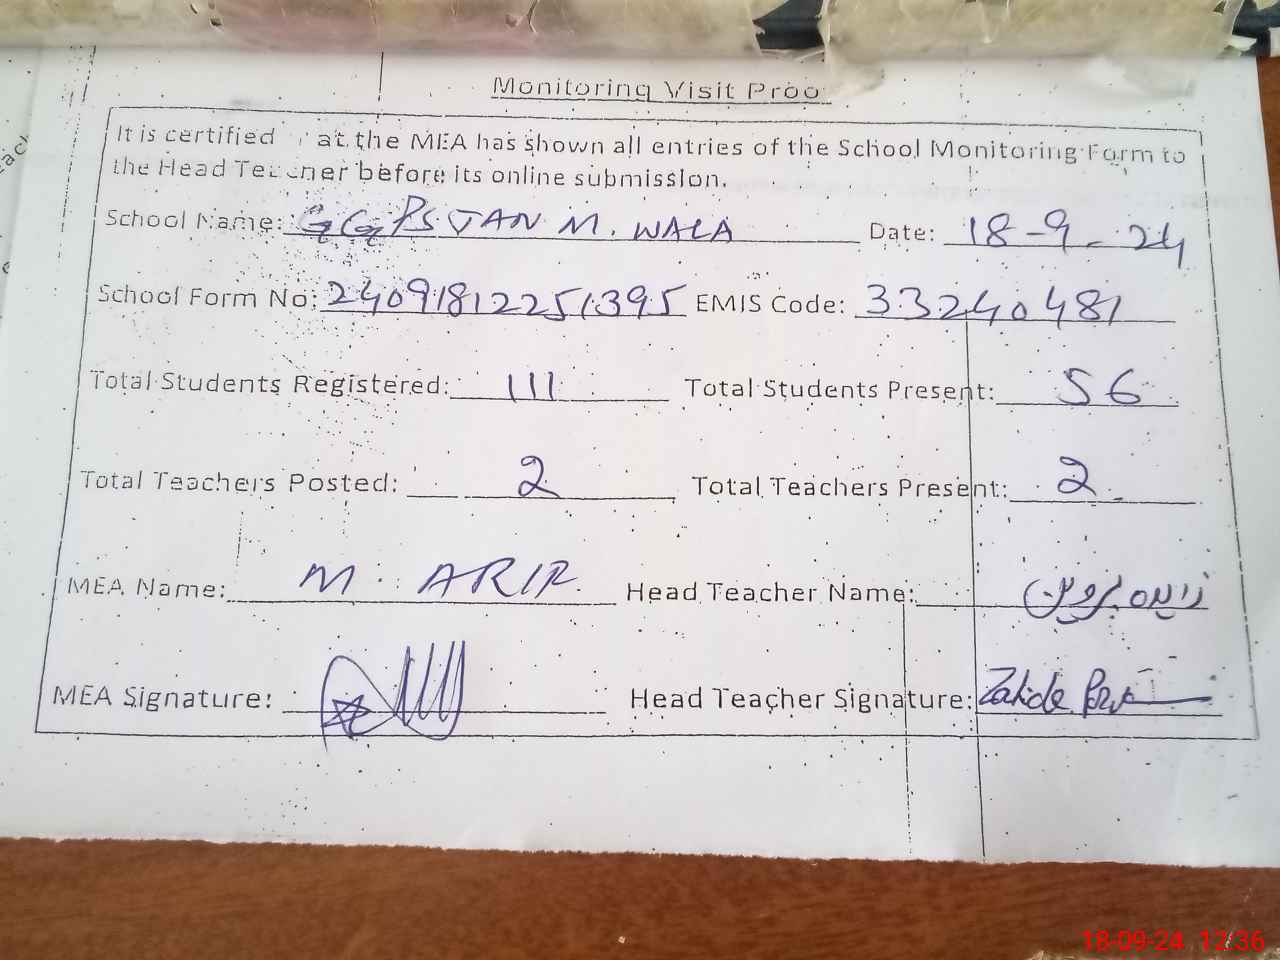 Monitoring Visit Proo
It is certified at the MEA has shown all entries of the School Monitoring Form to
the Head Teacher before its online submission.
School Name: GGPS JAN M. WALA Date: 18-9-24
School Form No: 24091812251395 EMIS Code: 33240481
Total Students Registered: 111 Total Students Present: 56
Total Teachers Posted: 2 Total Teachers Present: 2
MEA Name: M. ARIF Head Teacher Name: زاہدہ پروین
MEA Signature: Head Teacher Signature: Zahida
18-09-24 12:36